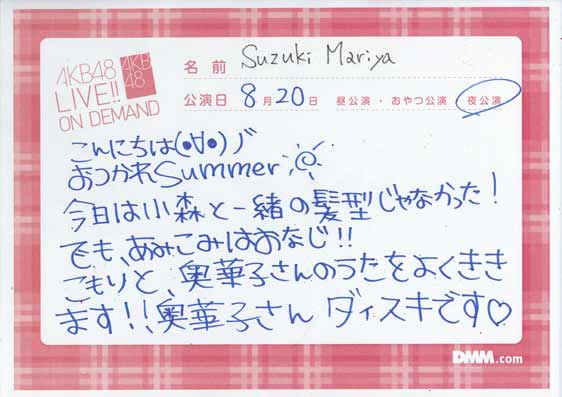 AKB48
LIVE!!
ON DEMAND
AKB
48
名前 Suzuki Mariya
公演日 8月20日 昼公演・おやつ公演 夜公演
こんにちは(•∀•)ﾉﾞ
おつかれSummer
今日は小森と一緒の髪型じゃなかった!
でも、あみこみはおなじ!!
こもりと、奥華子さんのうたをよくきき
ます!!奥華子さん ダイスキです♡
DMM.com